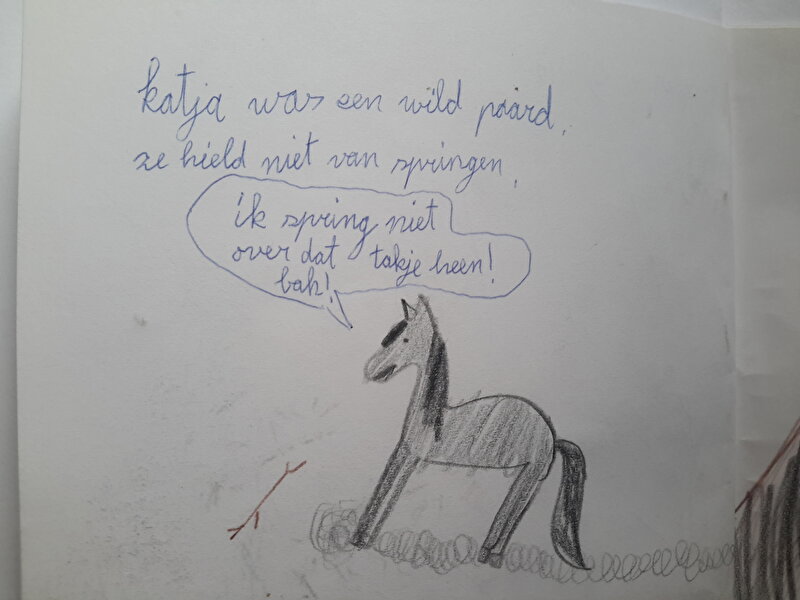 katja was een wild paard.
ze hield niet van springen.
ik spring niet
over dat takje heen!
bah!